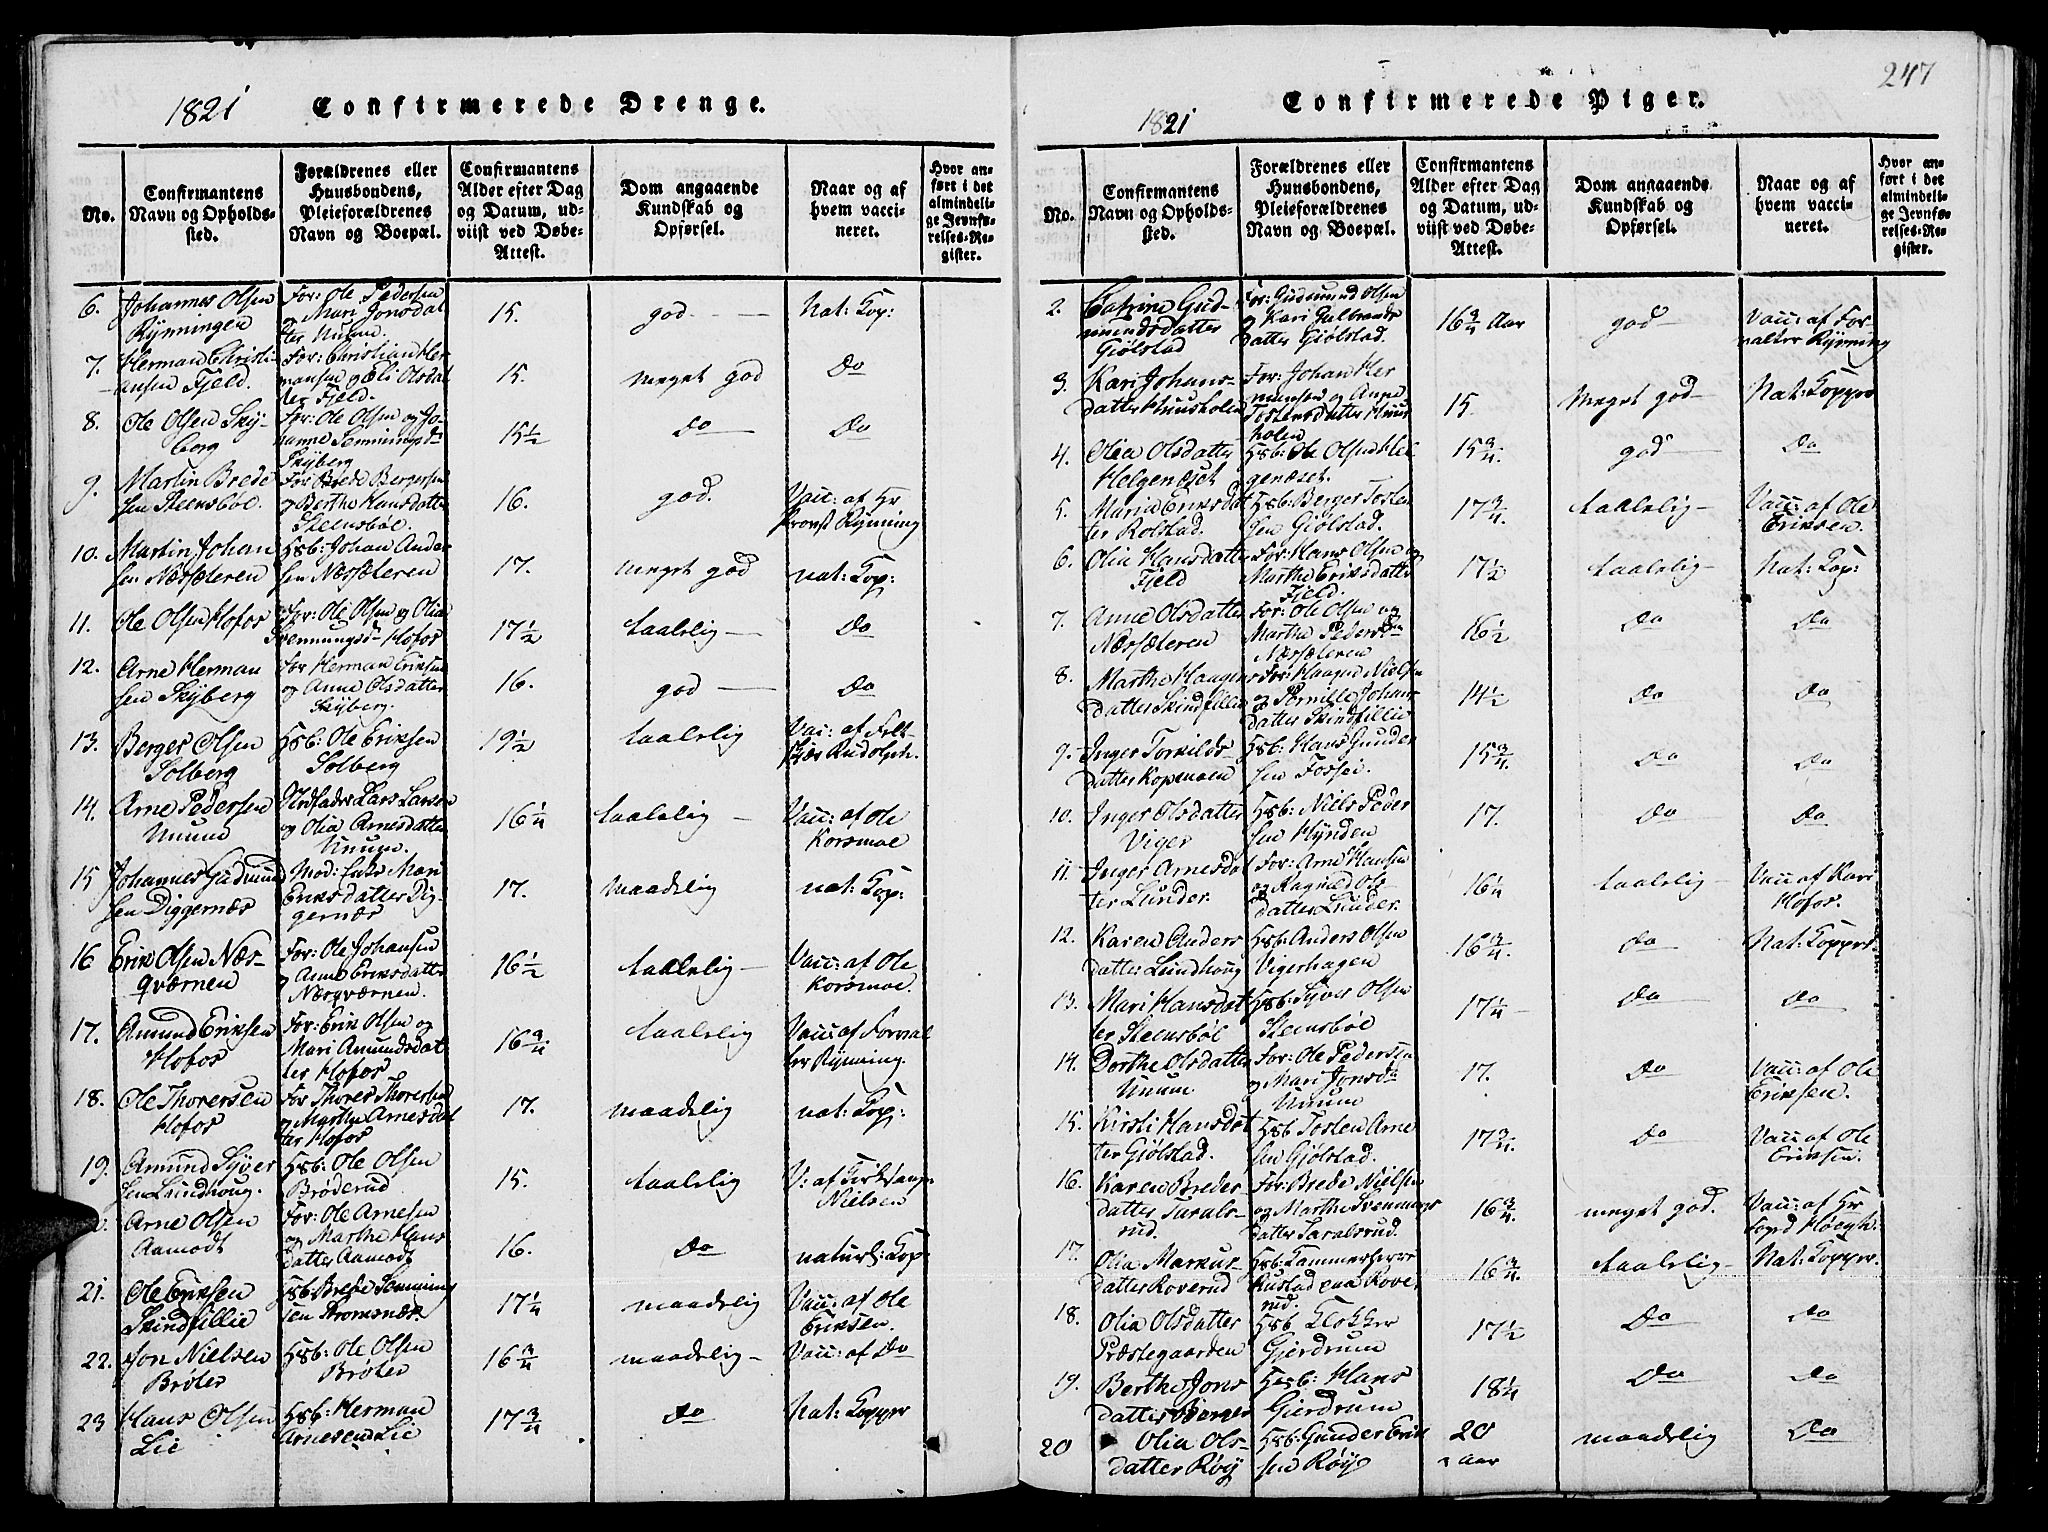 1821 Confirmerede Drenge.
No.
Confirmantens
Navn og Opholds-
sted.
Forældrenes eller
Huusbondens,
Pleieforældrenes
Navn og Boepæl.
Confirmantens
Alder efter Dag
og Datum, ud-
viist ved Døbe-
Attest.
Dom angaaende
Kundskab og
Opførsel.
Naar og af
hvem vacci-
neret.
Hvor an-
ført i det
almindeli-
ge Jevnfø-
relses-Re-
gister.
6. Johannes Olsen
Rÿnningen
For: Ole Pedersen
og Mari Jonsdat
ter Unum
15.
god
Nat: Kop:
7. Herman Christi-
ansen Fjeld.
For: Christian Her
mansen og Eli Olsdat
ter Fjeld.
15.
meget god
Do
8. Ole Olsen Skÿ-
berg
For: Ole Olsen og Jo-
hanne
Skÿberg
15½
Do
Do
9. Martin Brede
sen Steensbøl.
For Brede Bergersen
og Berthe Hansdatter
Steensbøl.
16.
god.
Vacc: af Hr
Provst Rÿnning
10. Martin Johan
sen Næssæteren
Hsb: Johan Ander
sen Næssæteren
17.
meget god
nat: Kop:
11. Ole Olsen Hofos
For: Ole Olsen og Olia
Svennungsd Hofos
17½
taalelig
Do
12. Arne Herman
sen Skÿberg
For Herman Eriksen
og Anne Olsdatter
Skÿberg.
16.
god
Do
13. Berger Olsen
Solberg
Hsb: Ole Eriksen
Solberg
19½
taalelig
Vac: af Felt
skjær Rudolph.
14. Arne Pedersen
Unum
Stedfader Lars Larsen
og Olia Arnesdatter
Unum.
16¼
taalelig
Vacc: af Ole
Korsmoe
15 Johannes Gudmund
sen Diggernæs
Mod: Enke Mari
Eriksdatter Dig-
gernæs
17.
maadelig
nat: Kop:
16 Erik Olsen Næs-
qværnen
For: Ole Johansen
og Anne Eriksdatter
Næsqværnen.
16½
taalelig
Vacc: af Ole
Korsmoe.
17. Amund Eriksen
Hofos
For: Erik Olsen og
Mari Amundsdat
ter Hofos
16¾
taalelig
Vacc: af Forval
ter Rÿnning.
18. Ole Thoresen
Hofos
For Thores Thoresen
og Marthe Arnesdat
ter Hofos
17.
maadelig
nat: Kop:
19. Amund Sÿver
sen Lundhoug.
Hsb: Ole Olsen
Brøderud
15.
taalelig
V: af Kirkesang:
Nielsen
Arne Olsen
Aamodt
For: Ole Arnesen
og Marthe Hans
datter Aamodt
16.
Do
naturl: Kop
21. Ole Eriksen
Skindfillie
Hsb Brede Sønning
sen Stromsnæs
17¼
maadelig
Vacc: af Ole
Eriksen.
22. Jon Nielsen
Brøter
Hsb: Ole Olsen
Brøter
16¾
maadelig
Vacc: af Do
23 Hans Olsen
Lie
Hsb: Herman
Arnesen Lie
17¾
Do
Nat: Kopper
247
1821 Confirmerede Piger.
No.
Confirmantens
Navn og Opholds-
sted.
Forældrenes eller
Huusbondens,
Pleieforældrenes
Navn og Boepæl.
Confirmantens
Alder efter Dag
og Datum, ud-
viist ved Døbe-
Attest.
Dom angaaende
Kundskab og
Opførsel.
Naar og af
hvem vacci-
neret.
Hvor an-
ført i det
almindeli-
ge Jevnfø-
relses-Re-
gister.
2. Catrine Gud-
mundsdatter
Giølstad
For: Gudmund Olsen
og Kari Gulbrands
datter Giølstad.
16¾ Aar
god
Vacc: af For-
valter Rÿnning
3. Kari Johans-
datter Huusholen
For: Johan Her
mansen og Anne
Tostensdatter Huus
holen
15
Meget god
Nat: Kopper
4. Olia Olsdatter
Helgenæset
Hsb: Ole Olsen Hel
genæset.
15¾.
god
Do
5. Maria Eriksdat
ter Rolstad.
Hsb: Berger Tosten
sen Giølstad.
17¾.
taalelig
Vacc: af Ole
Eriksen.
6. Olia Hansdatter
Fjeld
For: Hans Olsen og
Marthe Eriksdatter
Fjeld.
17½
taalelig
Nat: Kop:
7. Anne Olsdatter
Næssæteren
For: Ole Olsen og
Marthe Peders
Næssæteren
16½
Do
Do
8. Marthe Haagens
datter Skindfillie
For: Haagen Nielsen
og Pernille Johans
datter Skindfillie
14½
Do
Do
9. Inger Torkilds
datter Kopmoen
Hsb: Hans Gunder
sen Fossei.
15¾.
Do
Do
10. Inger Olsdatter
Viger
Hsb: Niels Peder
sen Hÿnden
17.
Do
Do
11. Inger Arnesdat
ter Lunder.
For: Arne Hansen
og Ragnild Ols
datter Lunder.
16¼
taalelig
Vacc af Kari
Hofos.
12. Karen Anders
datter Lundhoug
Hsb: Anders Olsen
Vigerhagen
16¾.
Do
Nat: Kopper.
13. Mari Hansdat
ter Steensbøl
Hsb: Sÿver Olsen
Steensbøl
17¼
Do
Do
14. Dorthe Olsdatter
Unum
For: Ole Pedersen
og Mari Jonsd
Unum
17.
Do
Vacc: af Ole
Eriksen.
15. Kirsti Hansdat
ter Giølstad.
Hsb Tosten Arne
sen Giølstad.
17¾.
Do
Vacc af Ole
Eriksen.
16. Karen Bredes-
datter Tarals-
rud.
For: Brede Nielsen
og Marthe Svennungs
datter Taralsrud.
16¾.
meget god.
Vacc: af Hr
Sogd Hoegh:
17. Olia Markus-
datter Roverud
Hsb: Kammerherre
Kustad paa Rove
rud.
16¾.
taalelig
Nat: Kopper.
18. Olia Olsdatter
Præstegaarden
Hsb Klokker
Gjerdrum
17½
Do
Do
19. Berthe Jons
datter
Hsb: Hans
Gjerdrum
18¼
Do
Do
20 Olia Ols-
datter Røÿ
Hsb: Gunder Erik
sen Røÿ
20
Aar
maadelig
Do